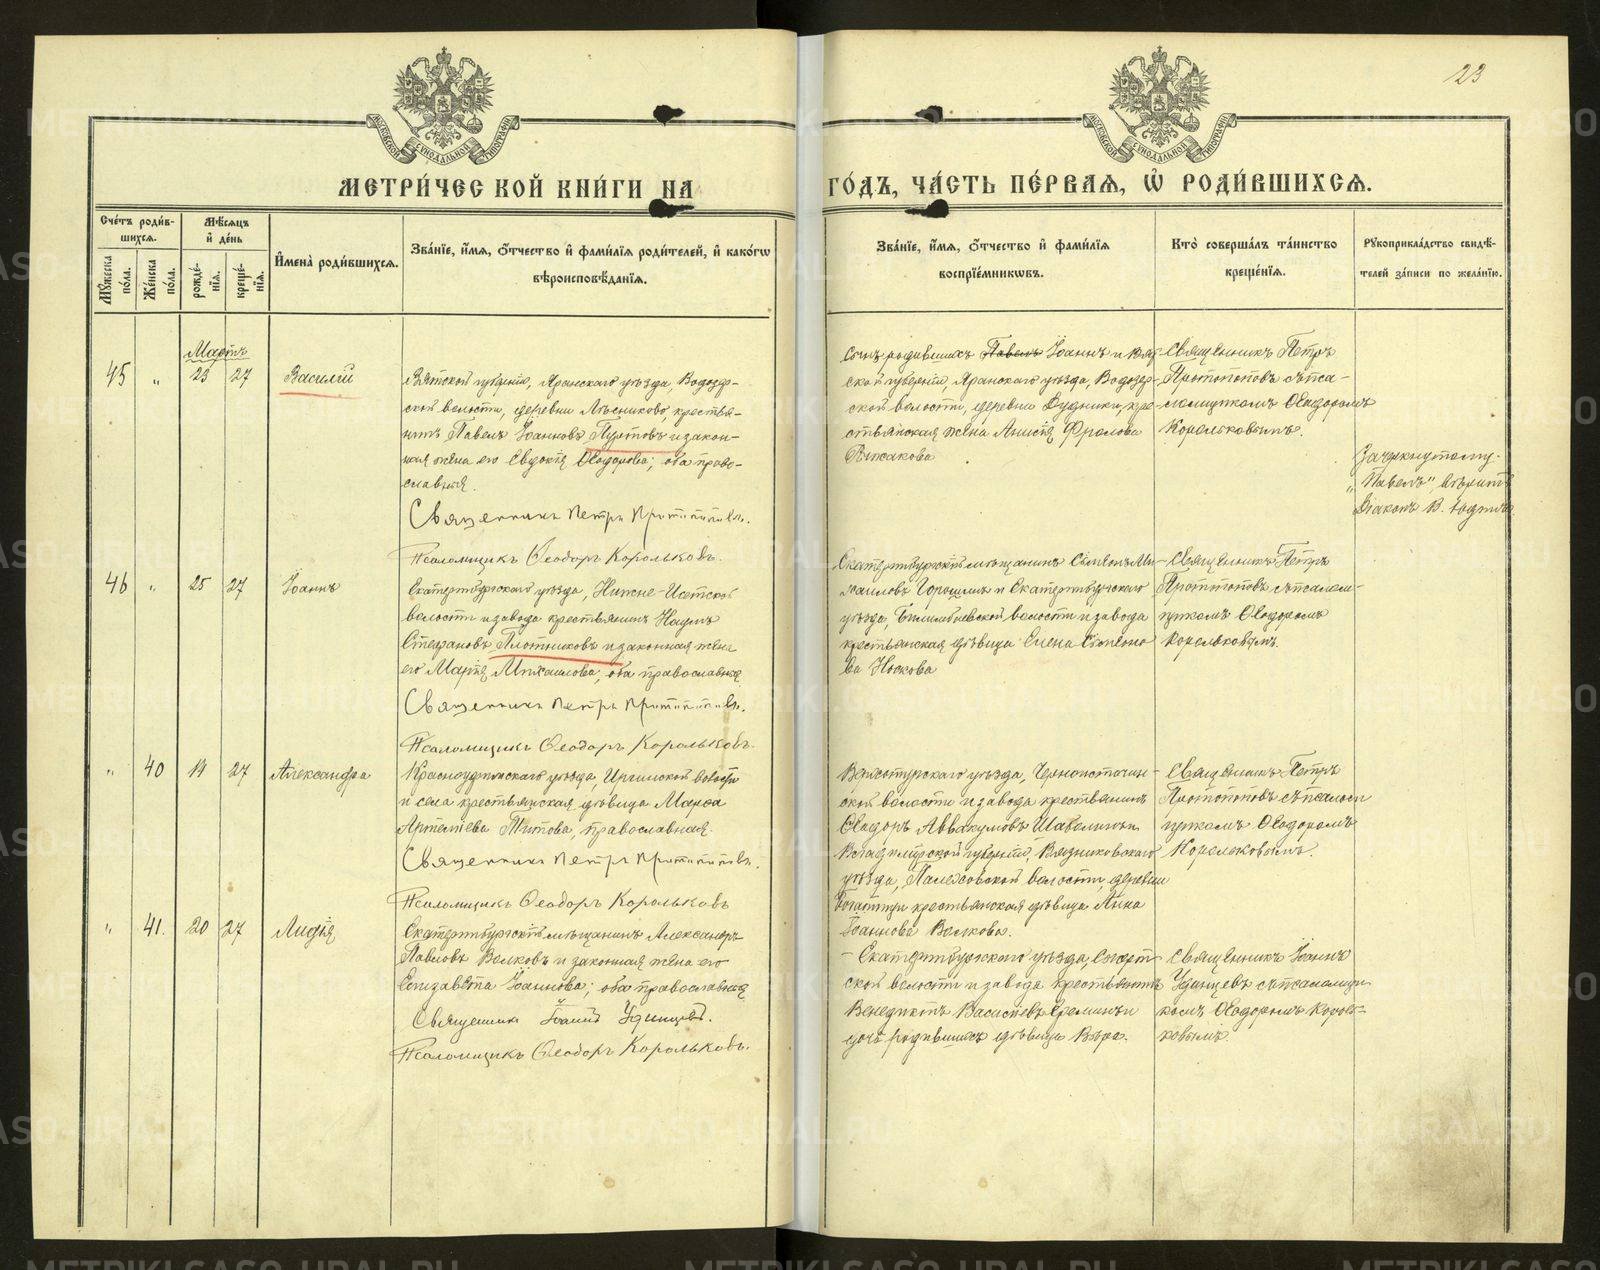 23
МОСКОВСКОЙ СѴНОДАЛЬНОЙ ТИПОГРАФІИ
МОСКОВСКОЙ СѴНОДАЛЬНОЙ ТИПОГРАФІИ
МЕТРИ́ЧЕСКОЙ КНИ́ГИ НА ГО́ДЪ, ЧА́СТЬ ПЕ́РВАЯ, Ѡ҆ РОДИ́ВШИХСЯ.
Сче́тъ роди́в-
шихся.
Мꙋ́жеска по́ла.
Же́нска по́ла.
Мѣ́сяцъ
и҆ де́нь
рожде́нїя.
креще́нїя.
И҆мена̀ роди́вшихся.
Зва́нїе, и҆́мя, ѻ҆́тчество и҆ фами́лїя роди́телей, и҆ како́гѡ
вѣроисповѣ́данїя.
Зва́нїе, и҆́мя, ѻ҆́тчество и҆ фами́лїя
воспрїе́мникѡвъ.
Кто̀ соверша́лъ та́инство
креще́нїя.
Рꙋкоприкла́дство свидѣ́-
телей за́писи по жела́нїю.
Мартъ
45 " 23 27 Василій
Вятской губерніи, Яранскаго уѣзда, Водозер-
ской волости, деревни Лѣсниково, крестья-
нинъ Павелъ Іоанновъ и закон-
ная жена его Евдокія Ѳеодорова; оба право-
славныя.
Священникъ Петръ Протопоповъ.
Псаломщикъ Ѳеодоръ Корольковъ.
Сынъ родившихъ Павелъ Іоаннъ и Вят-
ской губерніи, Яранскаго уѣзда, Водозер-
ской волости, деревни Рудники, кре-
стьянская жена Анисія Фролова
Священникъ Петръ
Протопоповъ съ пса-
ломщикомъ Ѳеодоромъ
Корольковымъ.
Зачеркнутому
"Павелъ" вѣрить
Діаконъ В.
46 " 25 27 Іоаннъ
Екатеринбургскаго уѣзда, Нижне-Исетской
волости и завода крестьянинъ Наумъ
Стефановъ Плотниковъ и законная жена
его Марія Михаилова, оба православныя
Священникъ Петръ Протопоповъ.
Псаломщикъ Ѳеодоръ Корольковъ.
Екатеринбургскій мѣщанинъ Симеонъ Ми-
хаиловъ и Екатеринбургскаго
уѣзда, Билимбаевской волости и завода
крестьянская дѣвица Елена Симеоно
ва Носкова
Священникъ Петръ
Протопоповъ съ псалом-
щикомъ Ѳеодоромъ
Корольковымъ.
" 40 14 27 Александра
Красноуфимскаго уѣзда, Иргинской волости
и села крестьянская дѣвица Марѳа
Артеміева Титова, православная.
Священникъ Петръ Протопоповъ.
Псаломщикъ Ѳеодоръ Корольковъ
Верхотурскаго уѣзда, Черноисточин-
ской волости и завода крестьянинъ
Ѳеодоръ Аввакумовъ и
Владимірской губерніи, Вязниковскаго
уѣзда, Палеховской волости, деревни
крестьянская дѣвица Анна
Іоаннова Волкова.
Священникъ Петръ
Протопоповъ съ псалом
щикомъ Ѳеодоромъ
Корольковымъ.
" 41. 20 27 Лидія
Екатеринбургскій мѣщанинъ Александръ
Павловъ Волковъ и законная жена его
Елизавета Іоаннова; оба православныя
Священникъ Іоаннъ Удинцевъ.
Псаломщикъ Ѳеодоръ Корольковъ.
Екатеринбургскаго уѣзда,
ской волости и завода крестьянинъ
Венедиктъ Васильевъ Еремкинъ и
дочь родившихъ дѣвица Вѣра.
Священникъ Іоаннъ
Удинцевъ съ псаломщи
комъ Ѳеодоромъ Король-
ковымъ.